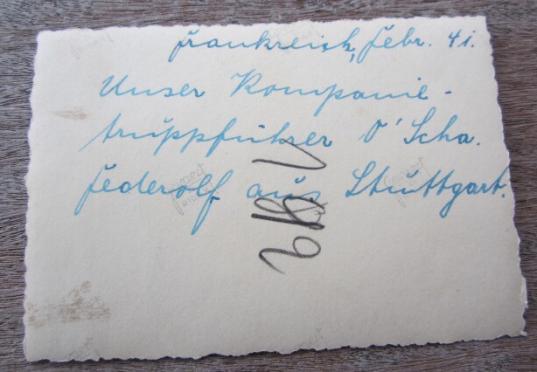 Frankreich, Febr. 41.
Unser Kompanie-
truppführer O'Scha.
Federolf aus Stuttgart.